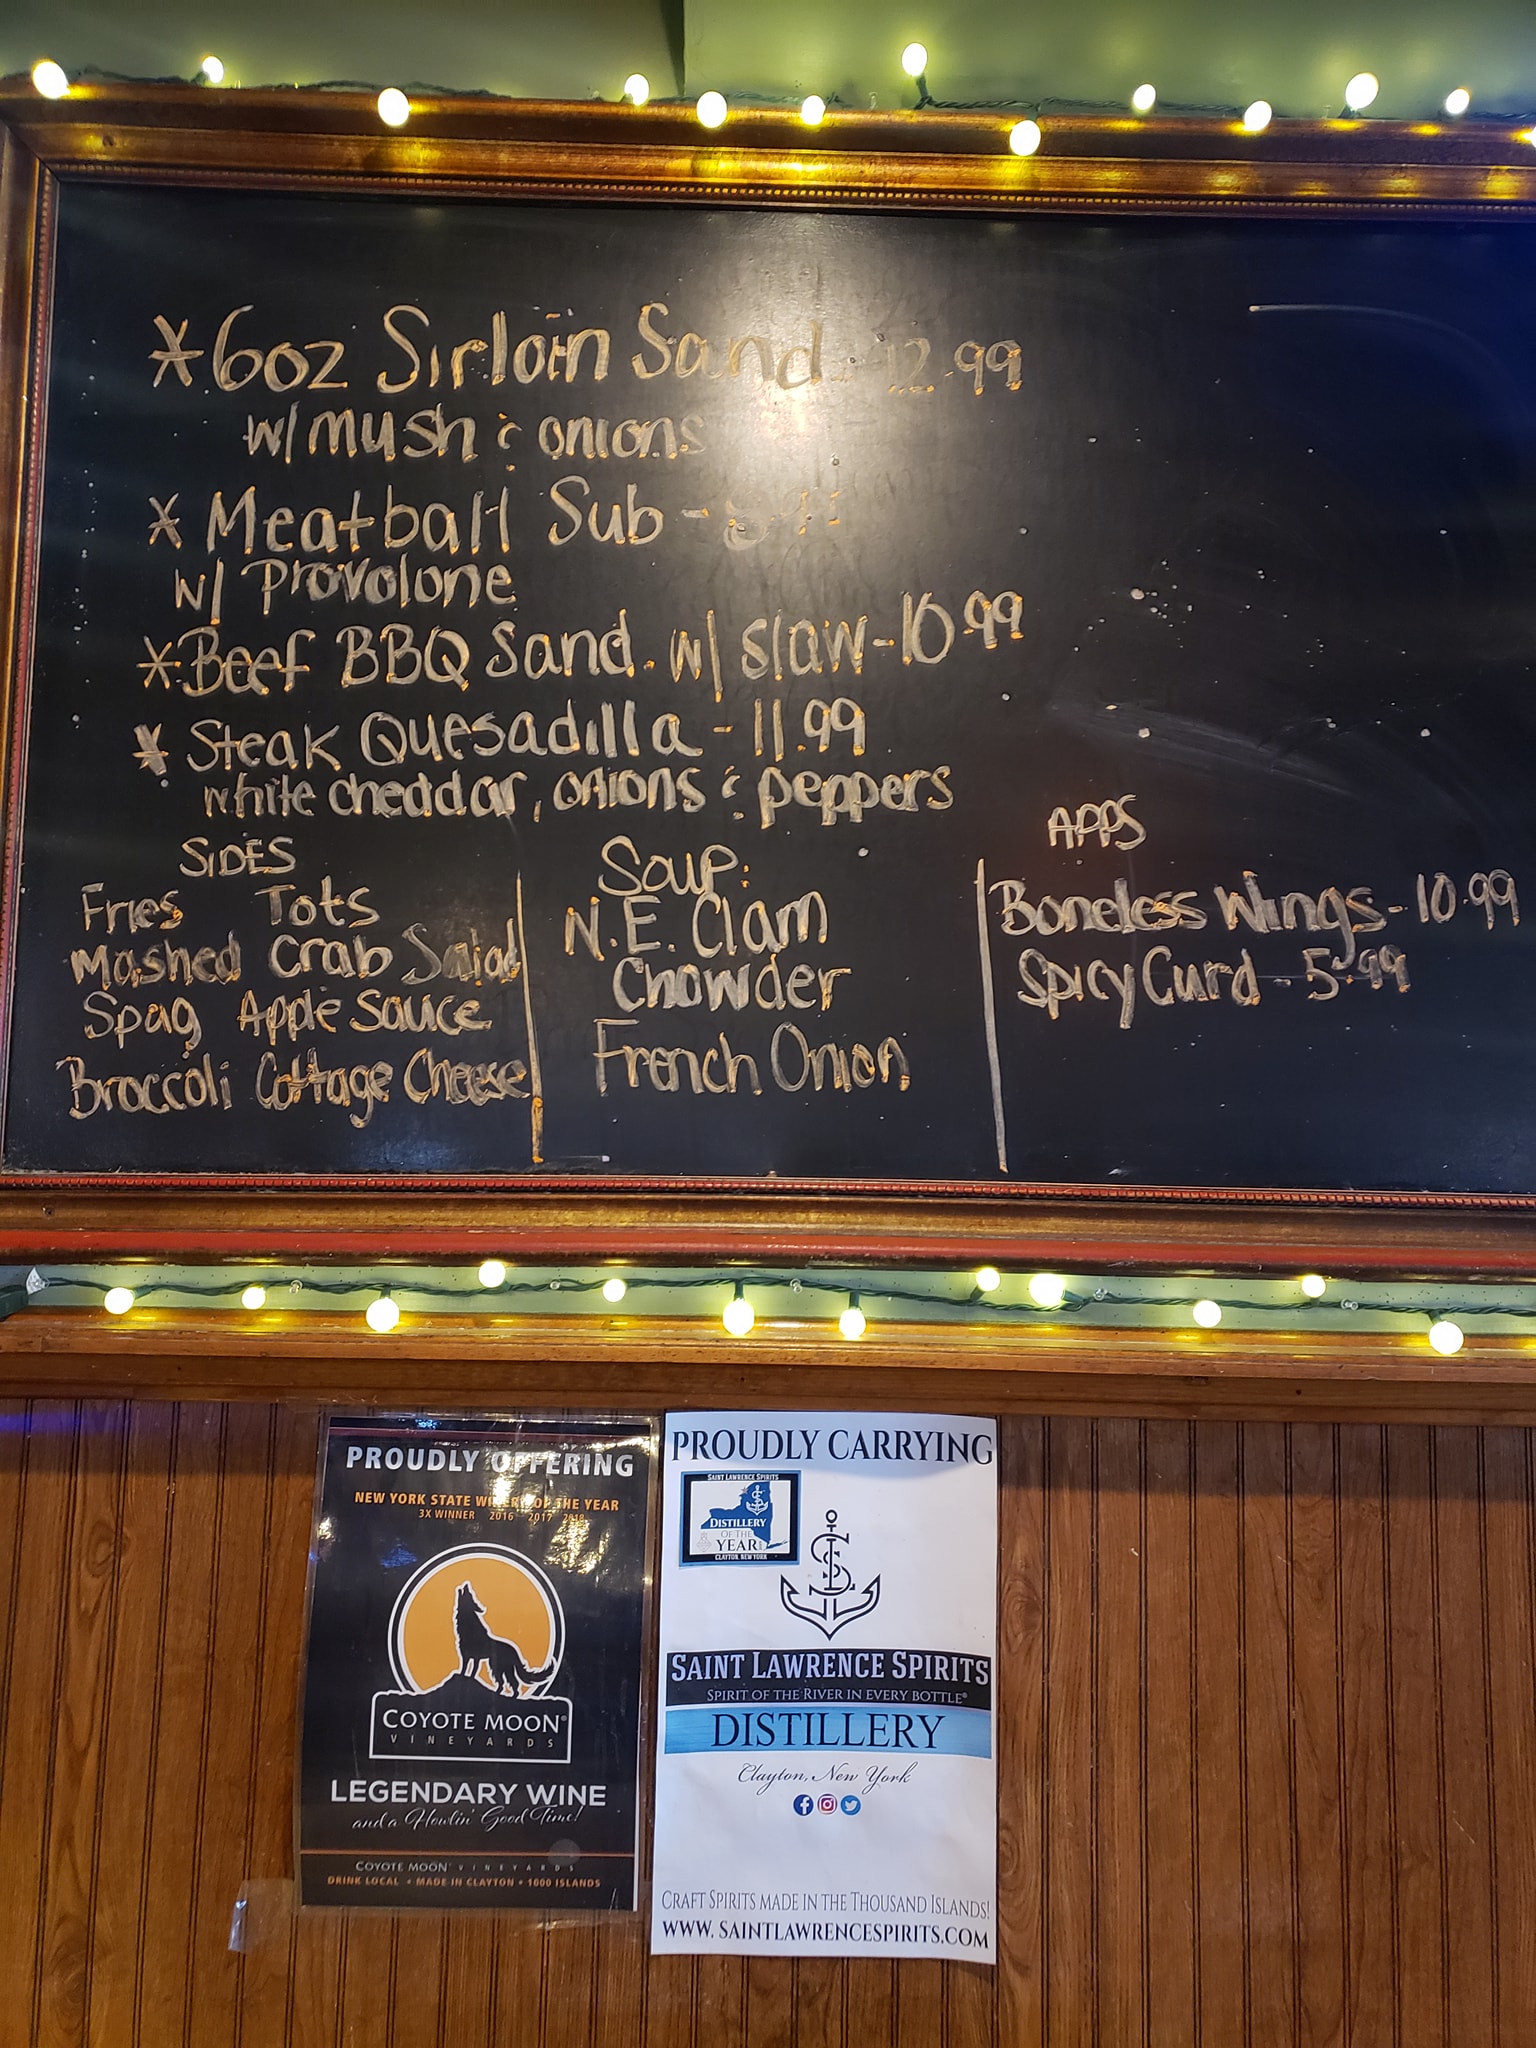 *6oz Sirloin Sand - 12.99
w/mush & onions
* Meatball Sub -
w/ Provolone
*Beef BBQ Sand. w/ slaw-10.99
* Steak Quesadilla - 11.99
white cheddar, onions & peppers
SIDES
Fries Tots
Mashed Crab Salad
Spag Apple Sauce
Broccoli Cottage Cheese
Soup:
N.E. Clam
Chowder
French Onion
APPS
Boneless Wings - 10.99
Spicy Curd - 5.99
PROUDLY OFFERING
NEW YORK STATE WINERY OF THE YEAR
3X WINNER 2016 2017 2018
COYOTE MOON®
VINEYARDS
LEGENDARY WINE
and a Howlin' Good Time!
COYOTE MOON® VINEYARDS
DRINK LOCAL • MADE IN CLAYTON • 1000 ISLANDS
PROUDLY CARRYING
SAINT LAWRENCE SPIRITS
DISTILLERY
OF THE
YEAR
CLAYTON, NEW YORK
SLS
SAINT LAWRENCE SPIRITS
SPIRIT OF THE RIVER IN EVERY BOTTLE®
DISTILLERY
Clayton, New York
CRAFT SPIRITS MADE IN THE THOUSAND ISLANDS!
WWW.SAINTLAWRENCESPIRITS.COM